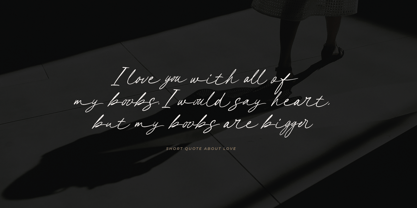 I love you with all of
my boobs. I would say heart,
but my boobs are bigger
SHORT QUOTE ABOUT LOVE